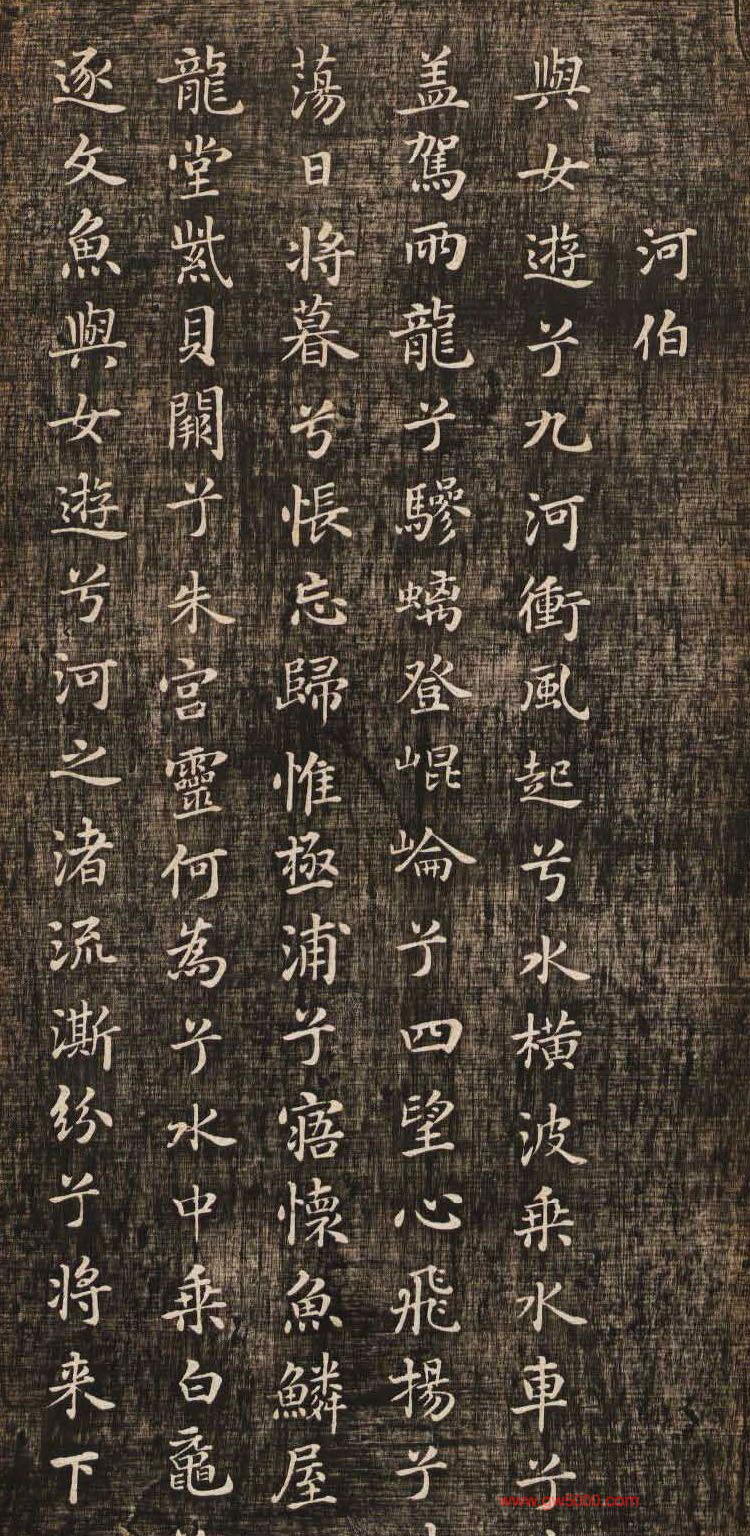 河伯
與女遊兮九河衝風起兮水橫波乗水車兮
盖駕兩龍兮驂螭登崐崘兮四望心飛揚兮
蕩日将暮兮悵忘歸惟極浦兮寤懷魚鱗屋
龍堂紫貝闕兮朱宫靈何為兮水中乗白黿
逐文魚與女遊兮河之渚流澌紛兮将来下
www.gw5000.com